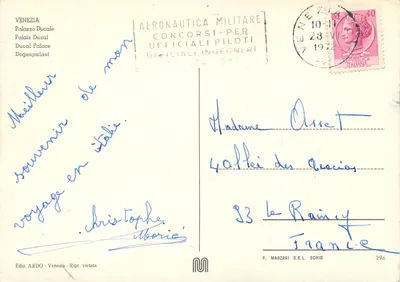 VENEZIA
Palazzo Ducale
Palais Ducal
Ducal Palace
Dogenpalast
AERONAUTICA MILITARE
CONCORSI-PER
UFFICIALI PILOTI
UFFICIALI INGEGNERI
VENEZIA
10-11
28-VI
197
Meilleur
souvenir de mon
voyage en italie.
Christophe
Madame Osset
4 allei des acacias
93 le Raincy
France
Ediz. ARDO - Venezia - Ripr. vietata
P. MARZARI S.R.L. SCHIO
296